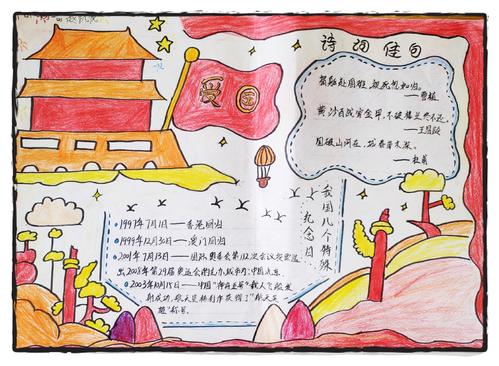 爱国
诗词佳句
捐躯赴国难,视死忽如归。
——曹植
黄沙百战穿金甲,不破楼兰终不还
——王昌龄
国破山河在,城春草木深。
——杜甫
我国几个特殊
纪念日
1997年7月1日——香港回归
1999年12月30日——澳门回归
2001年7月13日——国际奥委会第112次会议投票选
出2008年第29届奥运会的主办城市为:中国北京
2003年10月15日——中国"神舟五号"载人飞船发
射成功,航天员杨利伟获得了"航天英
雄"称号。